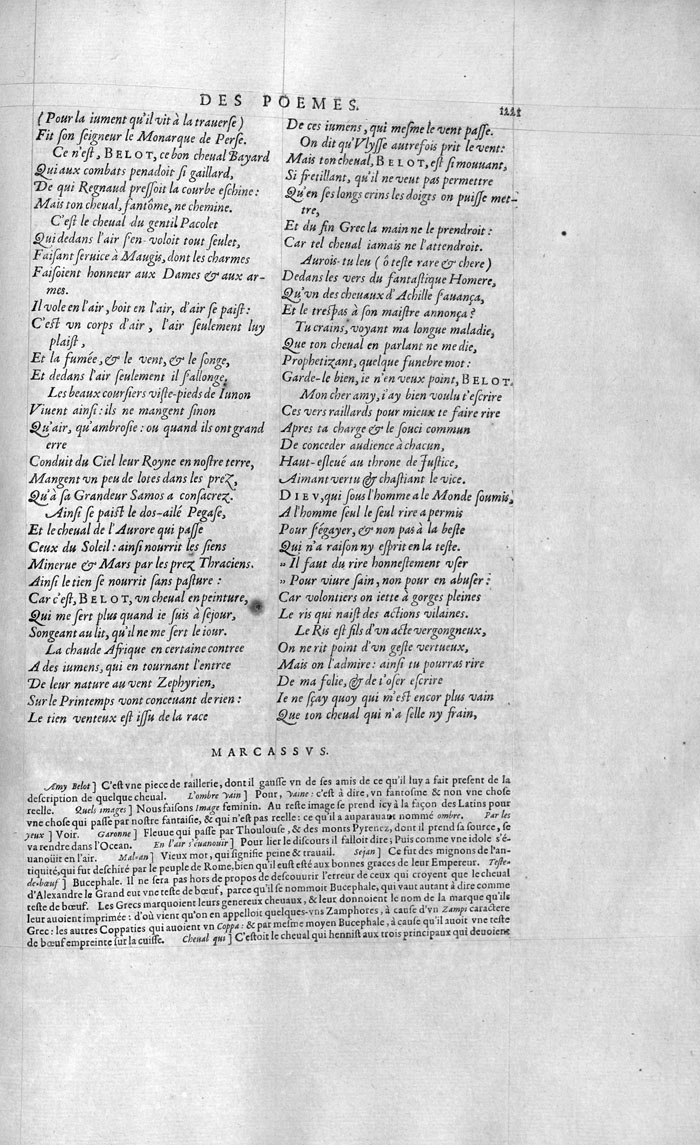 DES POEMES.
1111
(Pour la iument qu'il vit à la trauerse)
Fit son seigneur le Monarque de Perse.
Ce n'est, BELOT, ce bon cheual Bayard
Qui aux combats penadoit si gaillard,
De qui Regnaud pressoit la courbe eschine:
Mais ton cheual, fantôme, ne chemine.
C'est le cheual du gentil Pacolet
Qui dedans l'air s'en-voloit tout seulet,
Faisant seruice à Maugis, dont les charmes
Faisoient honneur aux Dames & aux ar-
mes.
Il vole en l'air, boit en l'air, d'air se paist:
C'est vn corps d'air, l'air seulement luy
plaist,
Et la fumée, & le vent, & le songe,
Et dedans l'air seulement il s'allonge.
Les beaux coursiers viste-pieds de Iunon
Viuent ainsi: ils ne mangent sinon
Qu'air, qu'ambrosie: ou quand ils ont grand
erre
Conduit du Ciel leur Royne en nostre terre,
Mangent vn peu de lotes dans les prez,
Qu'à sa Grandeur Samos a consacrez.
Ainsi se paist le dos-ailé Pegase,
Et le cheual de l'Aurore qui passe
Ceux du Soleil: ainsi nourrit les siens
Minerue & Mars par les prez Thraciens.
Ainsi le tien se nourrit sans pasture:
Car c'est, BELOT, vn cheual en peinture,
Qui me sert plus quand ie suis à séjour,
Songeant au lit, qu'il ne me sert le iour.
La chaude Afrique en certaine contree
A des iumens, qui en tournant l'entree
De leur nature au vent Zephyrien,
Sur le Printemps vont conceuant de rien:
Le tien venteux est issu de la race
De ces iumens, qui mesme le vent passe.
On dit qu'Vlysse autrefois prit le vent:
Mais ton cheual, BELOT, est si mouuant,
Si fretillant, qu'il ne veut pas permettre
Qu'en ses longs crins les doigts on puisse met-
tre,
Et du fin Grec la main ne le prendroit:
Car tel cheual iamais ne l'attendroit.
Aurois-tu leu (ô teste rare & chere)
Dedans les vers du fantastique Homere,
Qu'vn des cheuaux d'Achille s'auança,
Et le trespas à son maistre annonça?
Tu crains, voyant ma longue maladie,
Que ton cheual en parlant ne me die,
Prophetizant, quelque funebre mot:
Garde-le bien, ie n'en veux point, BELOT.
Mon cher amy, i'ay bien voulu t'escrire
Ces vers raillards pour mieux te faire rire
Apres ta charge & le souci commun
De conceder audience à chacun,
Haut-esleué au throne de Justice,
Aimant vertu & chastiant le vice.
DIEV, qui sous l'homme a le Monde soumis,
A l'homme seul le seul rire a permis
Pour s'égayer, & non pas à la beste
Qui n'a raison ny esprit en la teste.
» Il faut du rire honnestement vser
» Pour viure sain, non pour en abuser:
Car volontiers on iette à gorges pleines
Le ris qui naist des actions vilaines.
Le Ris est fils d'vn acte vergongneux,
On ne rit point d'vn geste vertueux,
Mais on l'admire: ainsi tu pourras rire
De ma folie, & de t'oser escrire
Ie ne sçay quoy qui m'est encor plus vain
Que ton cheual qui n'a selle ny frain,
MARCASSVS.
Amy Belot] C'est vne piece de raillerie, dont il gausse vn de ses amis de ce qu'il luy a fait present de la
description de quelque cheual. L'ombre vain] Pour, vaine: c'est à dire, vn fantosme & non vne chose
reelle. Quels images] Nous faisons Image feminin. Au reste image se prend icy à la façon des Latins pour
vne chose qui passe par nostre fantaisie, & qui n'est pas reelle: ce qu'il a auparauant nommé ombre. Par les
yeux] Voir. Garonne] Fleuue qui passe par Thoulouse, & des monts Pyrenez, dont il prend sa source, se
va rendre dans l'Ocean. En l'air s'euanouir] Pour lier le discours il falloit dire; Puis comme vne idole s'é-
uanoüit en l'air. Mal-an] Vieux mot, qui signifie peine & trauail. Sejan] Ce fut des mignons de l'an-
tiquité, qui fut deschiré par le peuple de Rome, bien qu'il eust esté aux bonnes graces de leur Empereur. Teste-
de-bœuf] Bucephale. Il ne sera pas hors de propos de descouurir l'erreur de ceux qui croyent que le cheual
d'Alexandre le Grand eut vne teste de bœuf, parce qu'il se nommoit Bucephale, qui vaut autant à dire comme
teste de bœuf. Les Grecs marquoient leurs genereux cheuaux, & leur donnoient le nom de la marque qu'ils
leur auoient imprimée: d'où vient qu'on en appelloit quelques-vns Zamphores, à cause d'vn Zampi caractere
Grec: les autres Coppaties qui auoient vn Coppa: & par mesme moyen Bucephale, à cause qu'il auoit vne teste
de bœuf empreinte sur la cuisse. Cheual qui] C'estoit le cheual qui hennist aux trois principaux qui deuoient